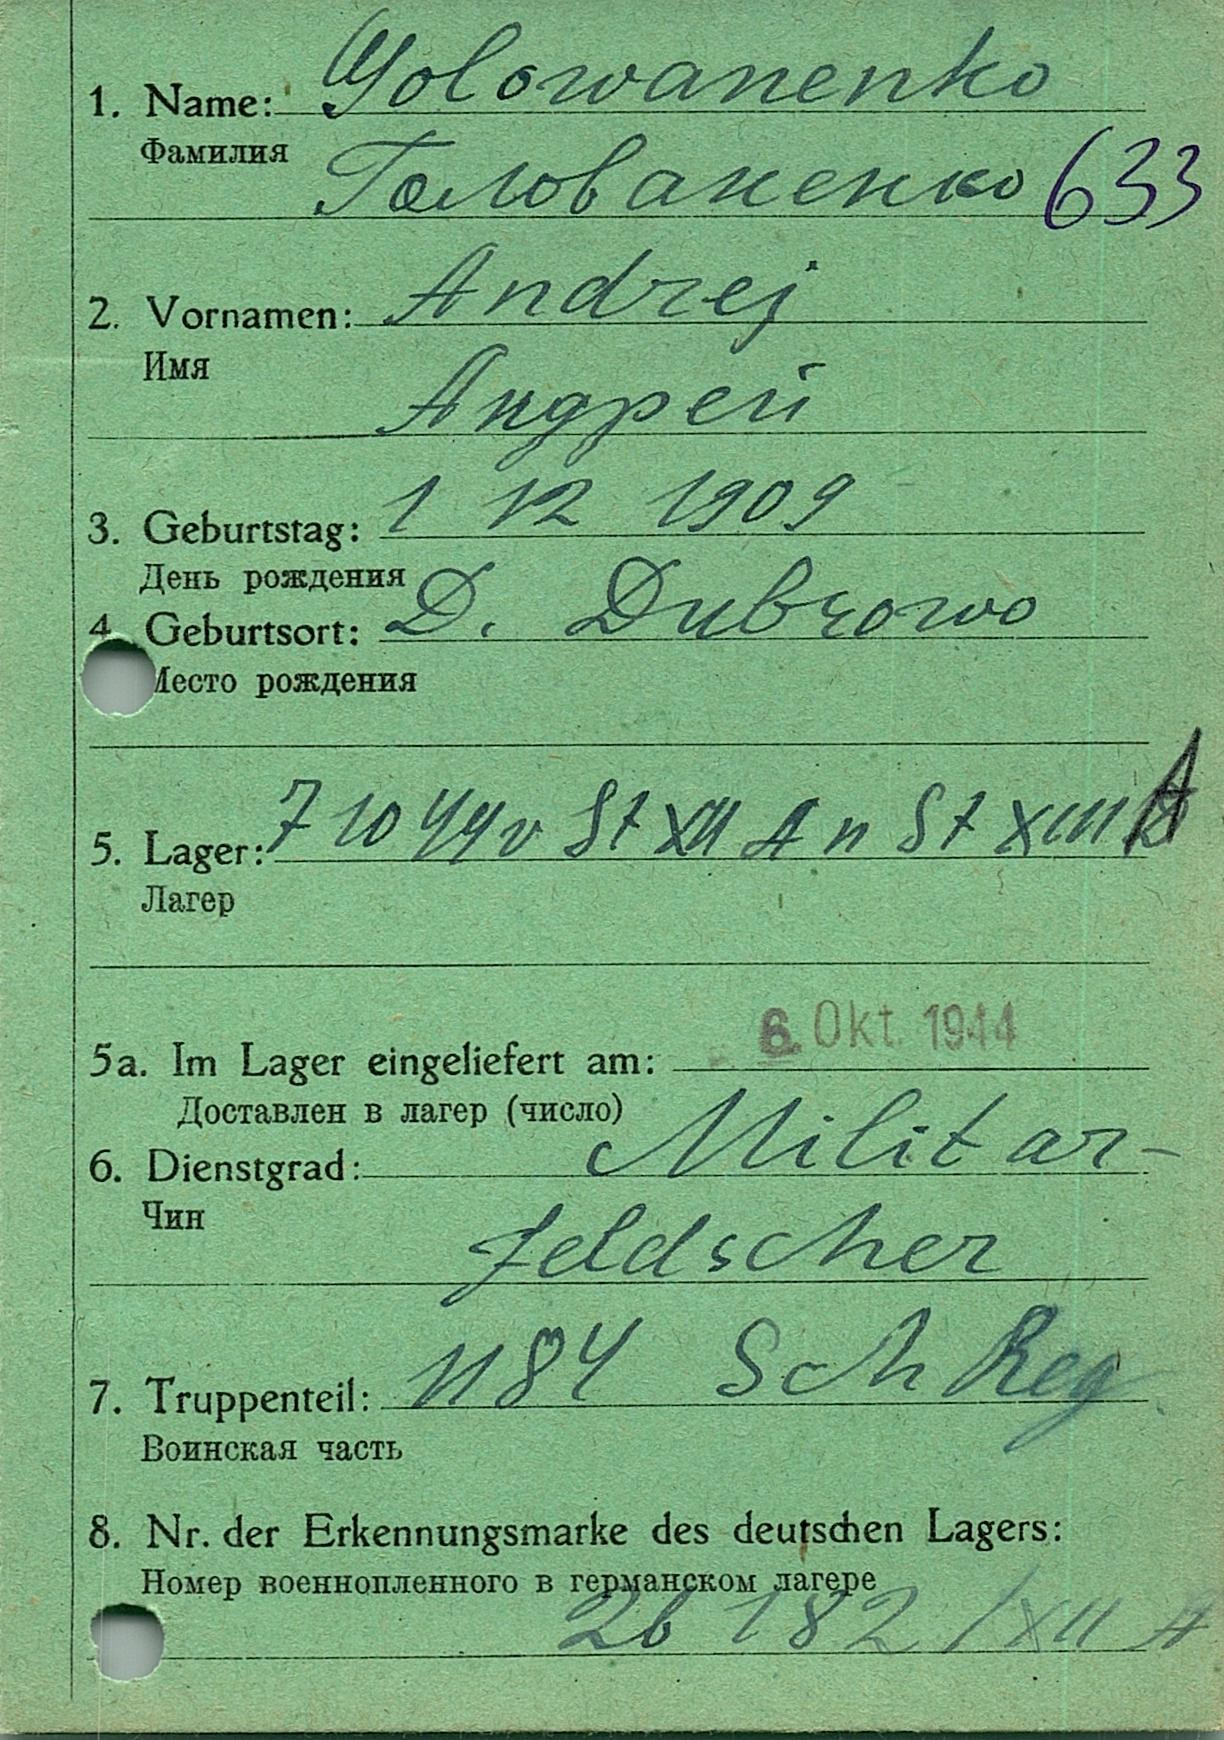 1. Name: Golowanenko
Фамилия Голованенко 633
2. Vornamen: Andrej
Имя
Андрей
3. Geburtstag: 1 12 1909
День рождения
4. Geburtsort: D. Dubrowo
Место рождения
5. Lager: 7 10 44 v St XII A n St XIII A
Лагер
5a. Im Lager eingeliefert am: 6. Okt. 1944
Доставлен в лагер (число)
6. Dienstgrad: Militar-
Чин
feldscher
7. Truppenteil: 1184 Sch Reg
Воинская часть
8. Nr. der Erkennungsmarke des deutschen Lagers:
Номер военнопленного в германском лагере
26 182 / XII A